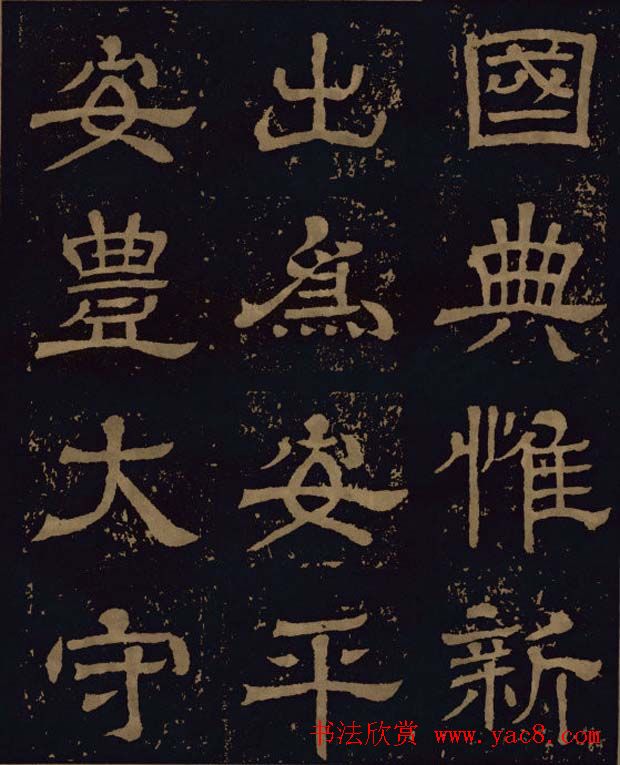 國典惟新
出為安平
安豊大守
书法欣赏 www.yac8.com